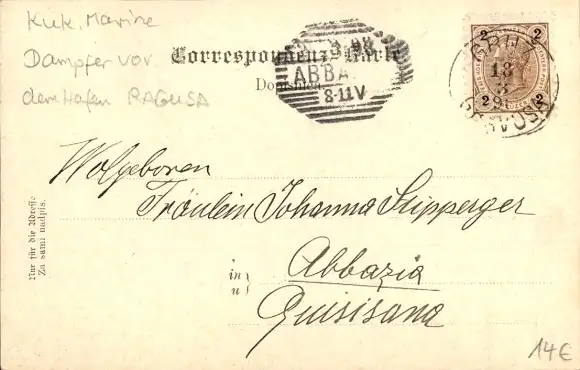 KuK. Marine
Dampfer vor
dem Hafen RAGUSA
Correspondenz-Karte
3 98
ABBA
8-11V
2 2
2 2
GRUŽ
13
3
GRAVOSA
Wolgeboren
Fräulein Johanna Stipperger
in
u
Abbazia
Quisisana
Nur für die Adresse
Za sami nadpis.
14€